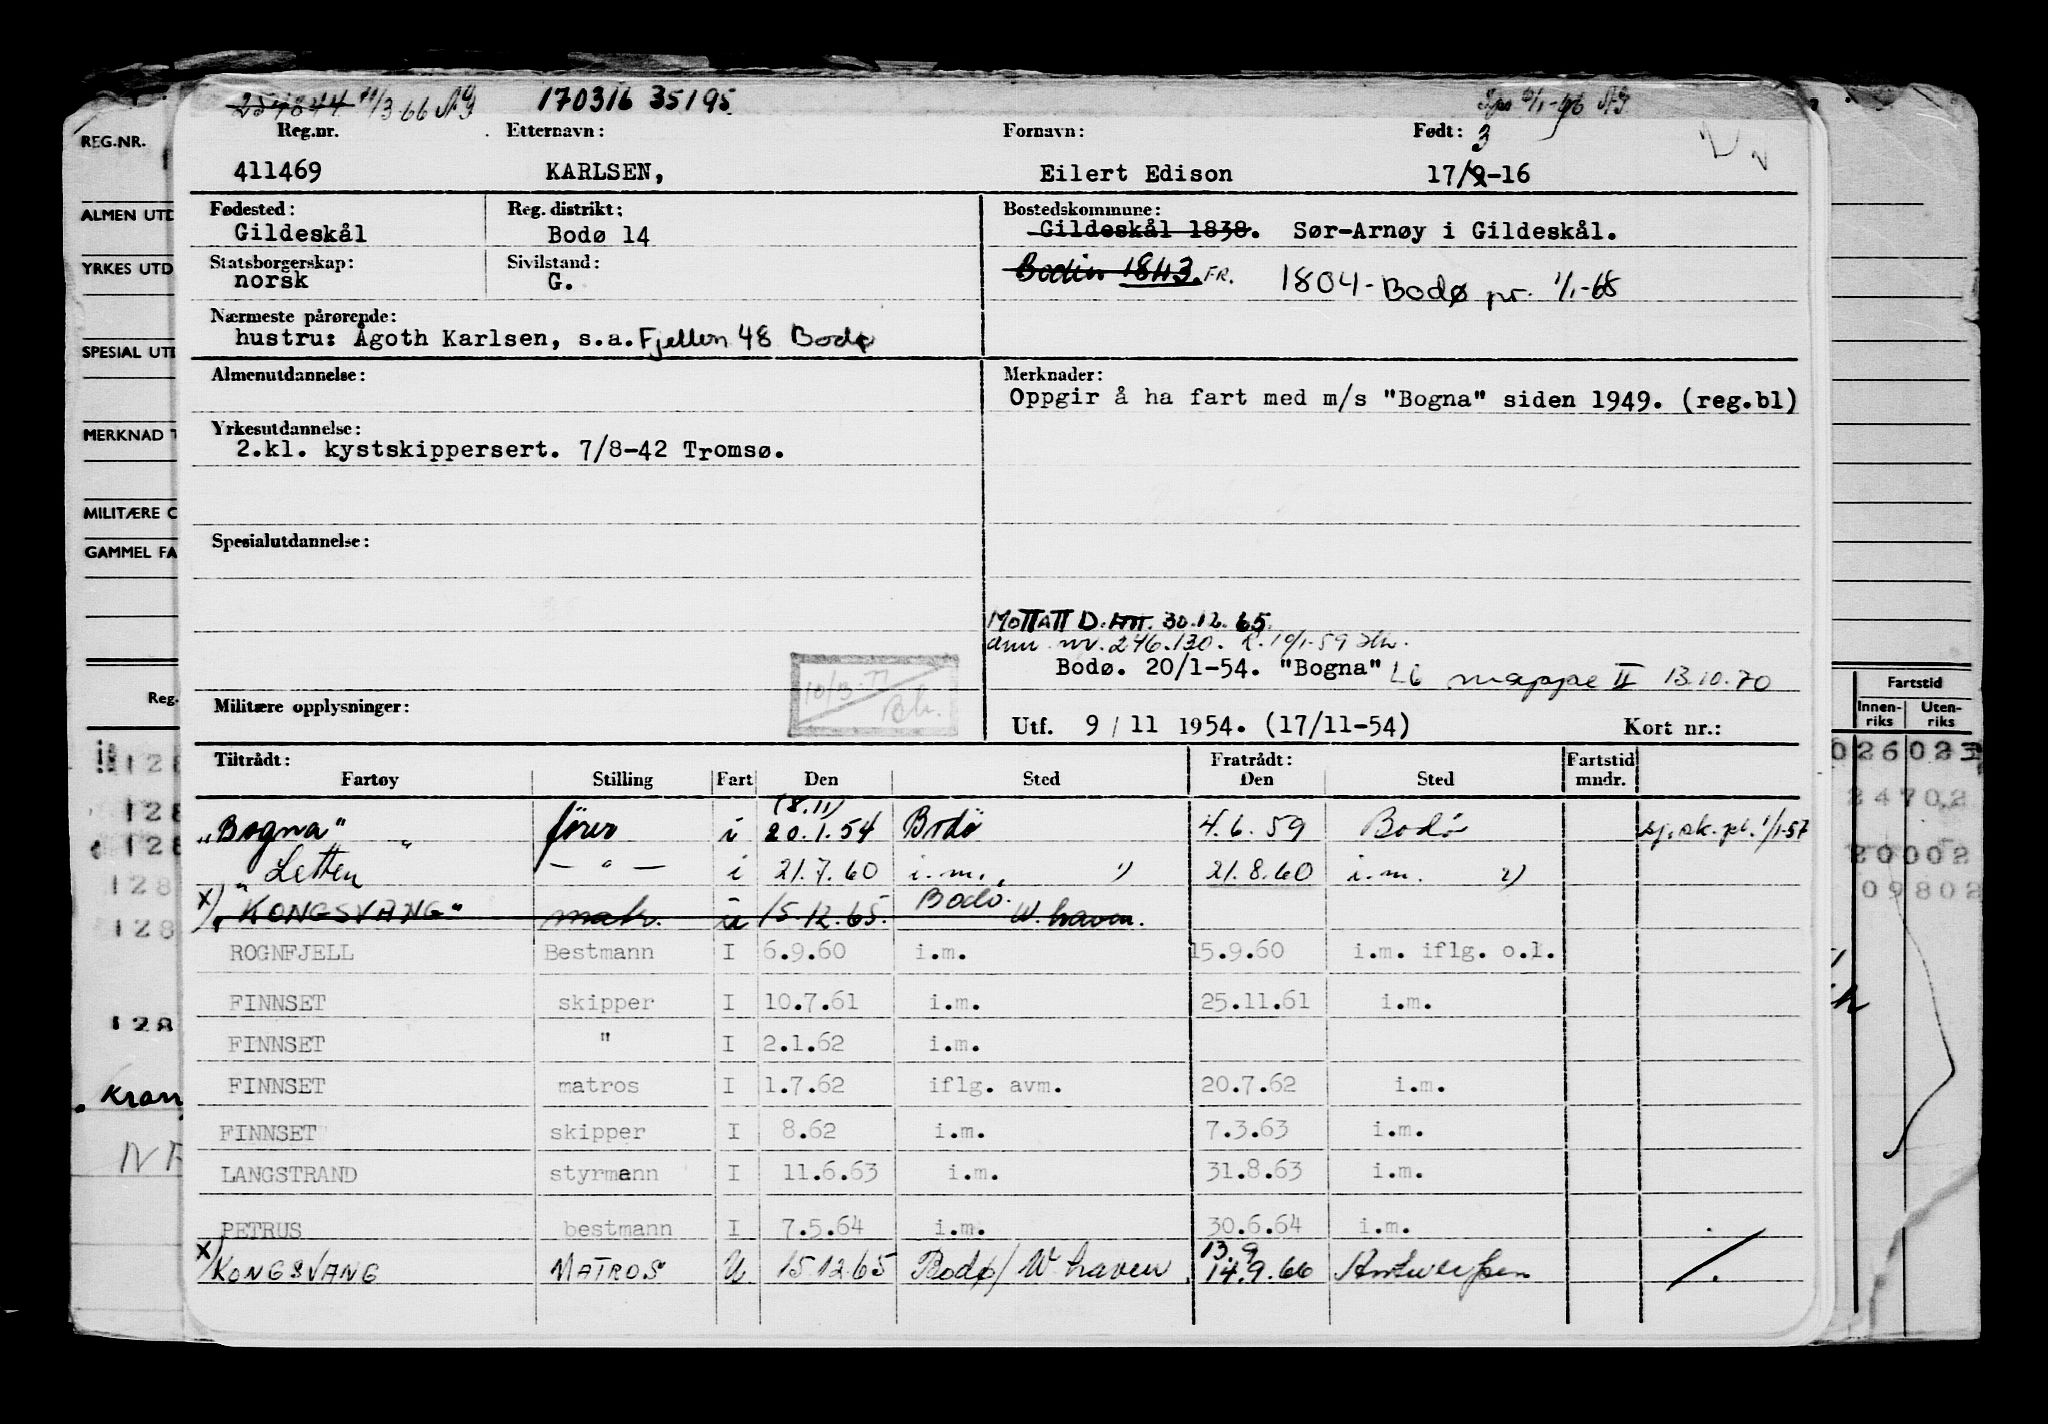 259844 11/3.66 170316 35195
Reg.nr. Etternavn: Fornavn: Født: 3
411469 KARLSEN, Eilert Edison 17/2-16
Fødested: Reg. distrikt: Bostedskommune:
Gildeskål Bodø 14 Gildeskål 1838. Sør-Arnøy i Gildeskål.
Statsborgerskap: Sivilstand: Bodin 1843. FR. 1804-Bodø pr. 1/1-68
norsk G.
Nærmeste pårørende:
hustru: Ågoth Karlsen, s.a. Fjellvn 48 Bodø
Almenutdannelse: Merknader:
Oppgir å ha fart med m/s "Bogna" siden 1949. (reg.bl)
Yrkesutdannelse:
2.kl. kystskippersert. 7/8-42 Tromsø.
Spesialutdannelse:
MOTTATT D. 30.12.65.
nr. 246.130.
Bodø. 20/1-54. "Bogna" L6 mappe II 13.10.70
Militære opplysninger:
Utf. 9/11 1954. (17/11-54) Kort nr.:
Tiltrådt: Fratrådt: Fartstid
Fartøy Stilling Fart Den Sted Den Sted mndr.
(8.11)
"Bogna" fører i 20.1.54 Bodø 4.6.59 Bodø 1/1-57
" Letten " — " — i 21.7.60 i.m. 1) 21.8.60 i.m. 2)
x) "KONGSVANG" matr. u 15.12.65. Bodø. W.haven.
ROGNFJELL Bestmann I 6.9.60 i.m. 15.9.60 i.m. iflg. o.l.
FINNSET skipper I 10.7.61 i.m. 25.11.61 i.m.
FINNSET " I 2.1.62 i.m.
FINNSET matros I 1.7.62 iflg. avm. 20.7.62 i.m.
FINNSET skipper I 8.62 i.m. 7.3.63 i.m.
LANGSTRAND styrmann I 11.6.63 i.m. 31.8.63 i.m.
PETRUS bestmann I 7.5.64 i.m. 30.6.64 i.m.
13.9
x) KONGSVANG MATROS U 15.12.65 Bodø/W.haven 14.9.66 Antwerpen
REG.NR.
ALMEN UTD
YRKES UTD
SPESIAL UTD
MERKNAD T
MILITÆRE O
GAMMEL FA
Reg.
128
128
128
128
128
128
Kran
Fartstid
Innen- Uten-
riks riks
02602
24702
20002
09802